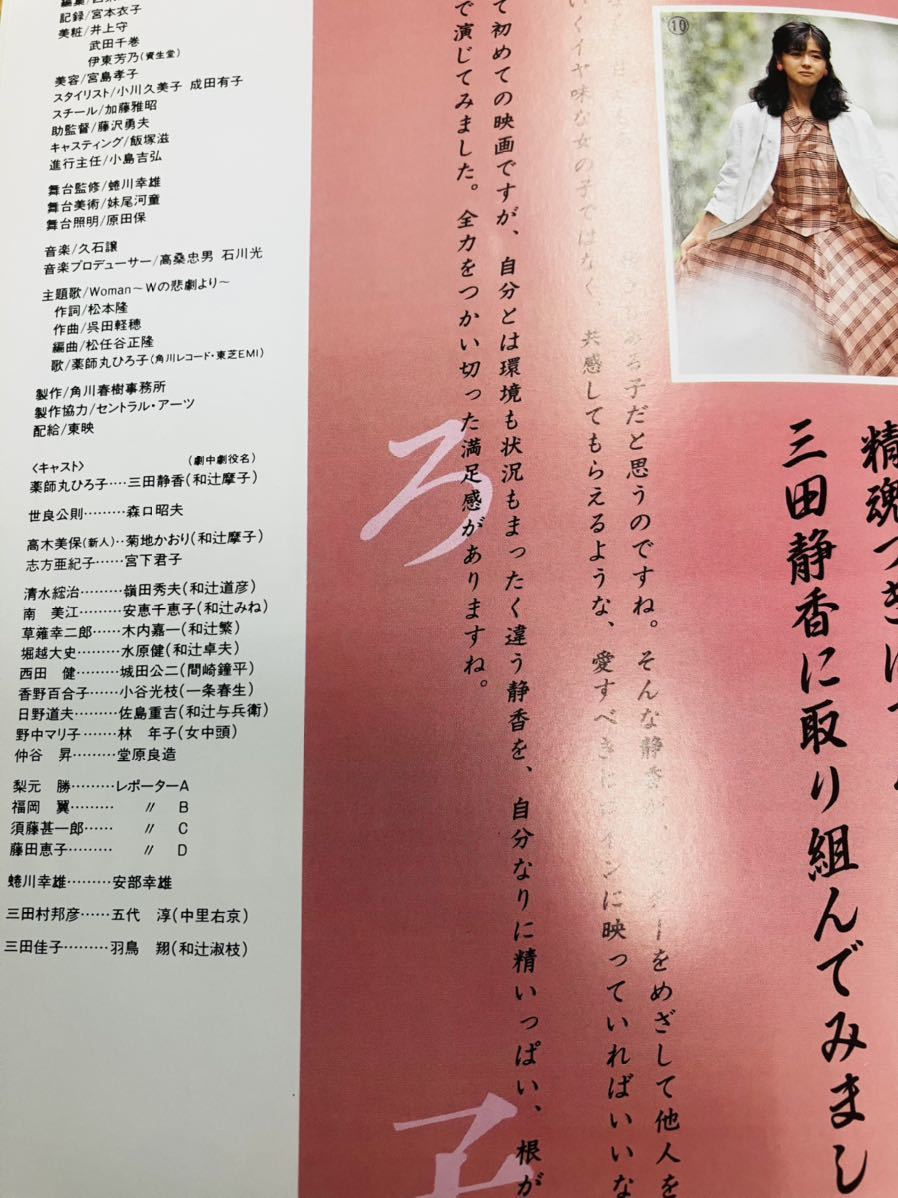 記録/宮本衣子
美粧/井上守
武田千巻
伊東芳乃(資生堂)
美容/宮島孝子
スタイリスト/小川久美子 成田有子
スチール/加藤雅昭
助監督/藤沢勇夫
キャスティング/飯塚滋
進行主任/小島吉弘
舞台監修/蜷川幸雄
舞台美術/妹尾河童
舞台照明/原田保
音楽/久石譲
音楽プロデューサー/高桑忠男 石川光
主題歌/Woman～Wの悲劇より～
作詞/松本隆
作曲/呉田軽穂
編曲/松任谷正隆
歌/薬師丸ひろ子(角川レコード・東芝EMI)
製作/角川春樹事務所
製作協力/セントラル・アーツ
配給/東映
〈キャスト〉 (劇中劇役名)
薬師丸ひろ子‥‥三田静香(和辻摩子)
世良公則‥‥‥‥森口昭夫
高木美保(新人)‥菊地かおり(和辻摩子)
志方亜紀子‥‥‥宮下君子
清水綋治‥‥‥‥嶺田秀夫(和辻道彦)
南 美江‥‥‥‥安恵千恵子(和辻みね)
草薙幸二郎‥‥‥木内嘉一(和辻繁)
堀越大史‥‥‥‥水原健(和辻卓夫)
西田 健‥‥‥‥城田公二(間崎鐘平)
香野百合子‥‥‥小谷光枝(一条春生)
日野道夫‥‥‥‥佐島重吉(和辻与兵衛)
野中マリ子‥‥‥林 年子(女中頭)
仲谷 昇‥‥‥‥堂原良造
梨元 勝‥‥‥‥レポーターA
福岡 翼‥‥‥‥ 〃 B
須藤甚一郎‥‥‥ 〃 C
藤田恵子‥‥‥‥ 〃 D
蜷川幸雄‥‥‥‥安部幸雄
三田村邦彦‥‥‥五代 淳(中里右京)
三田佳子‥‥‥‥羽鳥 翔(和辻淑枝)
⑩
精魂つき
三田静香に取り組んでみまし
ある子だと思うのですね。そんな静香が、 をめざして他人を
いくイヤ味な女の子ではなく、共感してもらえるような、愛すべき インに映っていればいいな
て初めての映画ですが、自分とは環境も状況もまったく違う静香を、自分なりに精いっぱい、根が
で演じてみました。全力をつかい切った満足感がありますね。
ろ
子